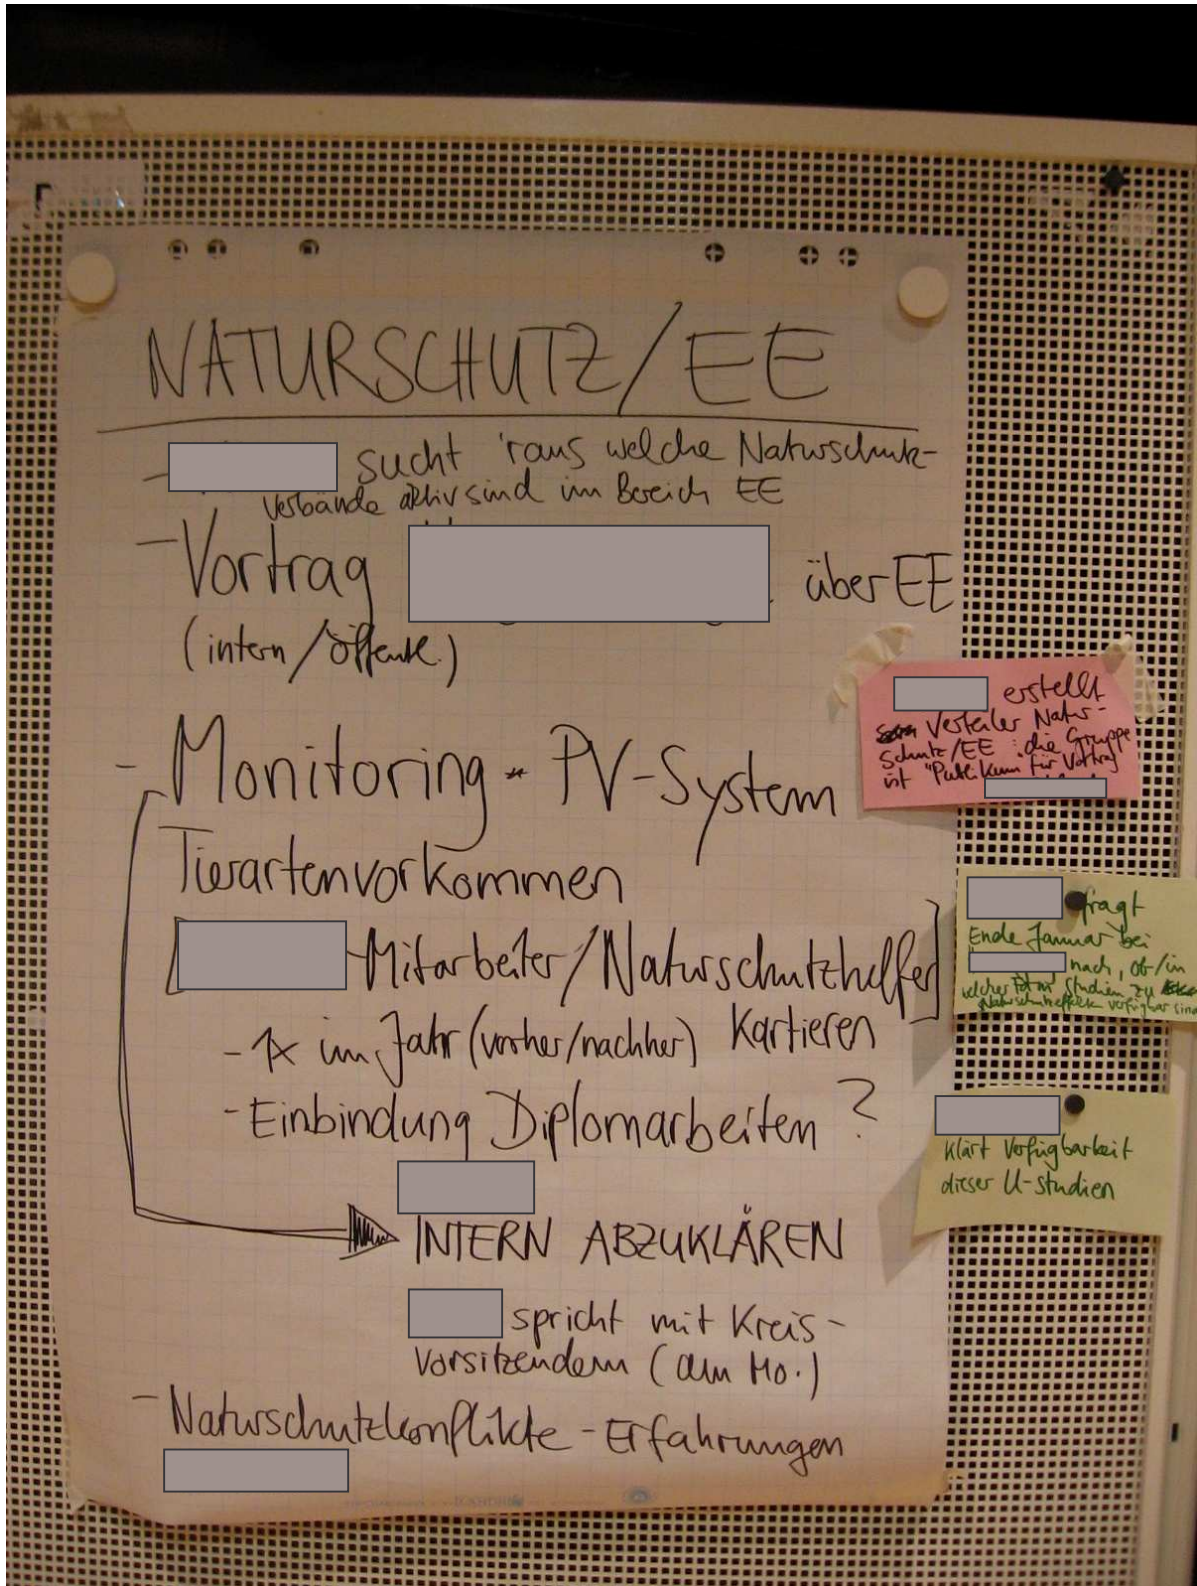 NATURSCHUTZ/EE
- sucht 'raus welche Naturschutz-
verbände aktiv sind im Bereich EE
- Vortrag über EE
(intern/öffentl.)
- Monitoring - PV-System
Tierartenvorkommen
[ -Mitarbeiter/Naturschutzhelfer]
- 1x im Jahr (vorher/nachher) kartieren
- Einbindung Diplomarbeiten ?
INTERN ABZUKLÄREN
spricht mit Kreis-
vorsitzendem (am Mo.)
- Naturschutzkonflikte - Erfahrungen
erstellt
Verteiler Natur-
schutz/EE : die Gruppe
ist "Publikum" für Vortrag
fragt
Ende Januar bei
nach, ob/in
welcher Form Studien zu
Naturschutzeffekten verfügbar sind
klärt Verfügbarkeit
dieser U-Studien